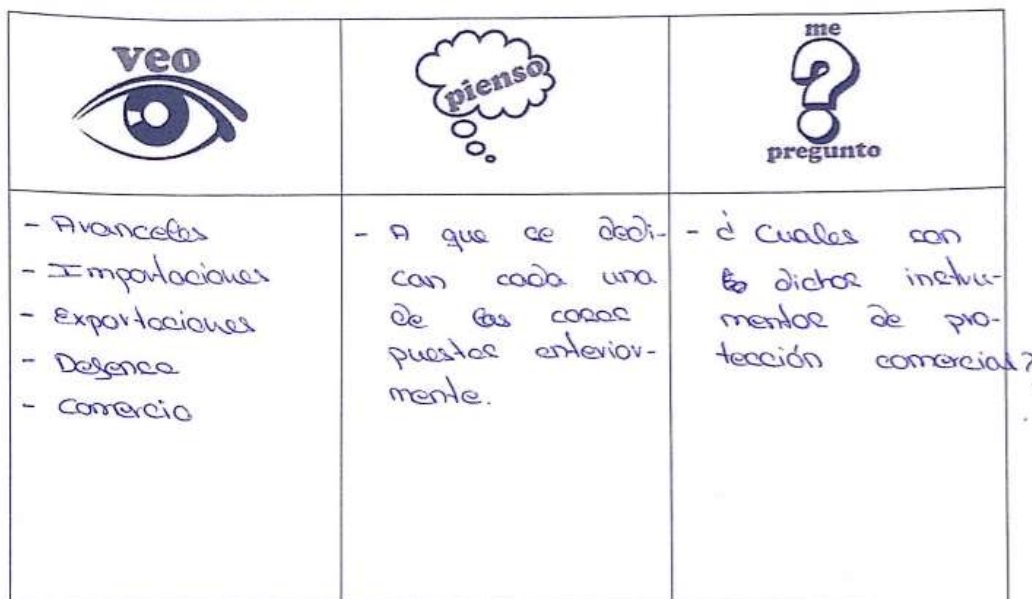 veo
pienso
me
pregunto
- Avanceles
- Importaciones
- Exportaciones
- Defensa
- comercio
- A que se dedi-
can cada una
de las cosas
puestas anterior-
mente.
- ¿Cuales son
dichos instru-
mentos de pro-
tección comercial?